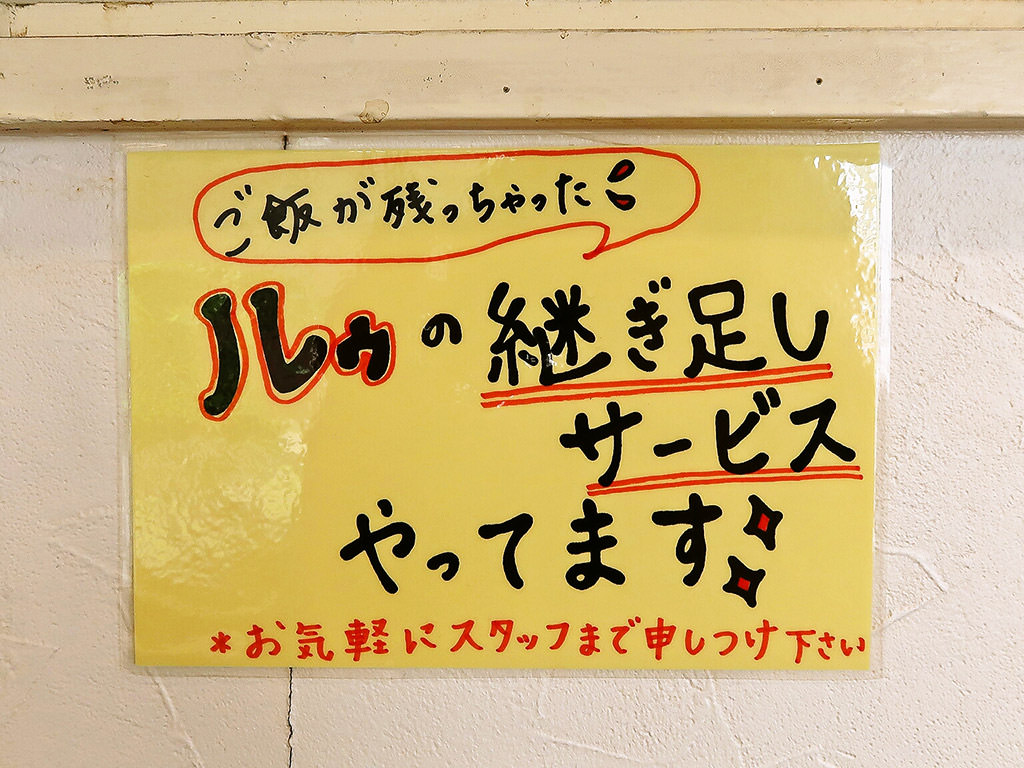 ご飯が残っちゃった
ルゥの継ぎ足し
サービス
やってます
*お気軽にスタッフまで申しつけ下さい